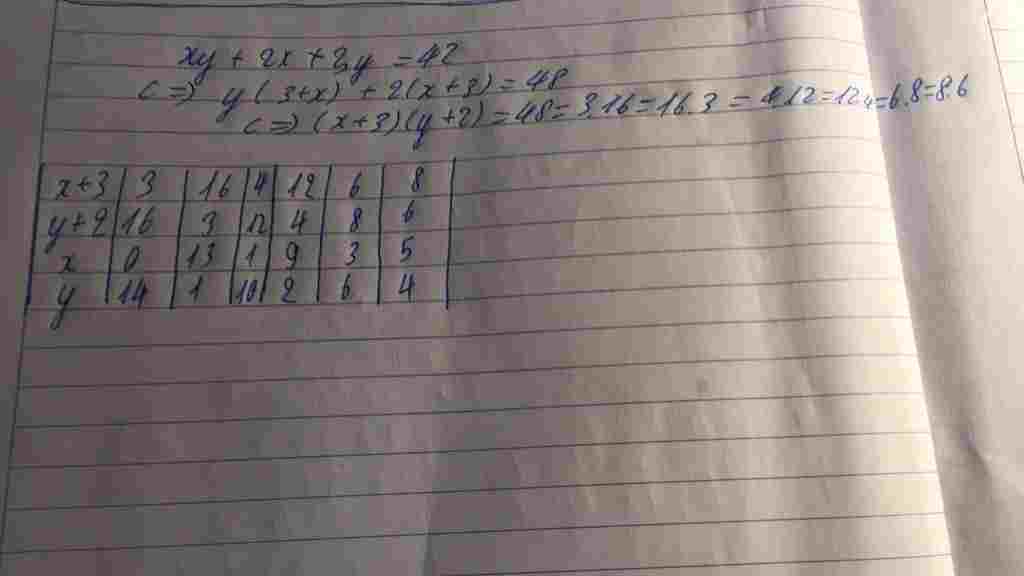 xy + 2x + 3y = 42
<=> y(3+x) + 2(x+3) = 48
<=> (x+3)(y+2) = 48 = 3.16 = 16.3 = 4.12 = 12.4 = 6.8 = 8.6
x+3 | 3 | 16 | 4 | 12 | 6 | 8
y+2 | 16 | 3 | 12 | 4 | 8 | 6
x | 0 | 13 | 1 | 9 | 3 | 5
y | 14 | 1 | 10 | 2 | 6 | 4